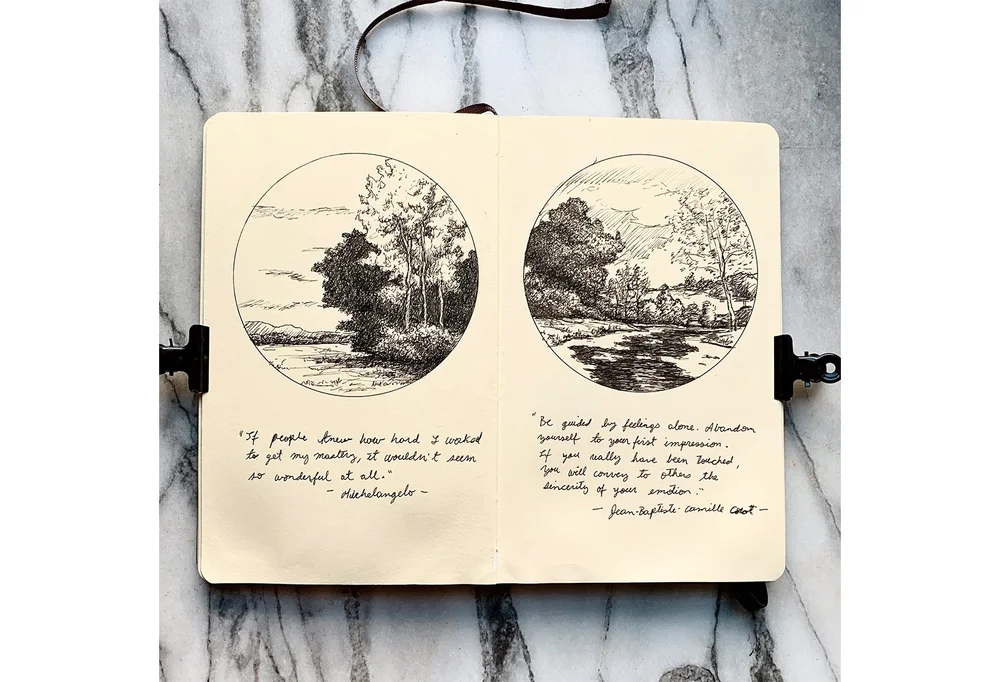 "If people knew how hard I worked
to get my mastery, it wouldn't seem
so wonderful at all."
- Michelangelo -
"Be guided by feelings alone. Abandon
yourself to your first impression.
If you really have been touched,
you will convey to others the
sincerity of your emotion."
- Jean-Baptiste-Camille Corot -